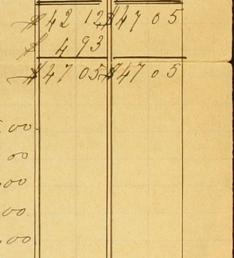 $42 12 $47 05
$ 4 93
$47 05 $47 05
00
00
00
00
00